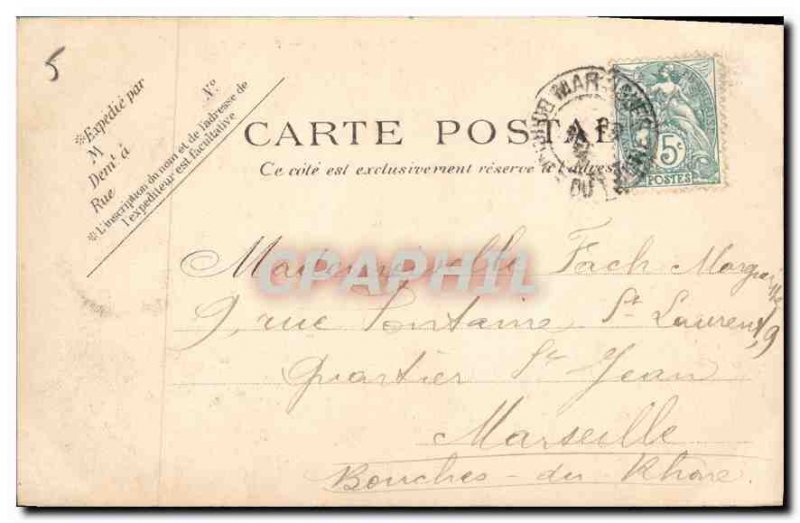 5
*Expedié par
M
Demt à
Rue
No
*L'inscription du nom et de l'adresse de
l'expéditeur est facultative
CARTE POSTALE
Ce côté est exclusivement réservé à l'adresse
5c
POSTES
MARSEILLE
CPAPHIL
Mademoiselle Fach
9, rue Fontaine St Laurent, 9
Quartier St Jean
Marseille
Bouches-du Rhône.